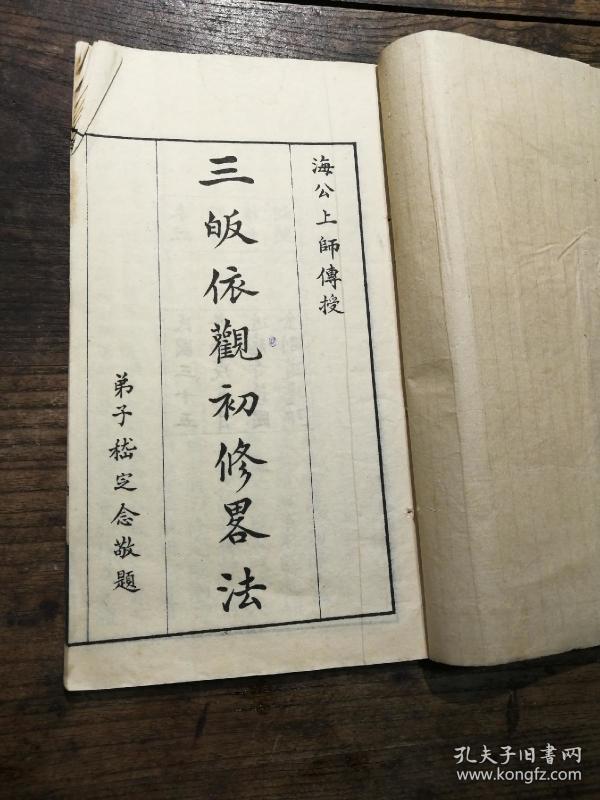 海公上師傳授
三皈依觀初修畧法
弟子嵇定念敬題
孔夫子旧書网
www.kongfz.com